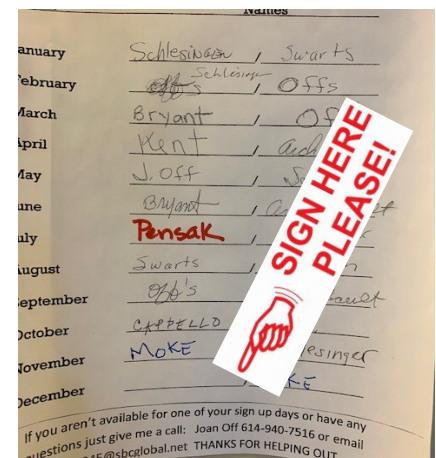 Names
anuary Schlesinger / Swarts
ebruary Schlesinger / Offs
March Bryant / Of
April Kent /
May J. Off /
une Bryant /
uly Pensak
ugust Swarts /
eptember Off's
october CAPPELLO
November MOKE esinger
December KE
SIGN HERE
PLEASE!
If you aren't available for one of your sign up days or have any
uestions just give me a call: Joan Off 614-940-7516 or email
@sbcglobal.net THANKS FOR HELPING OUT